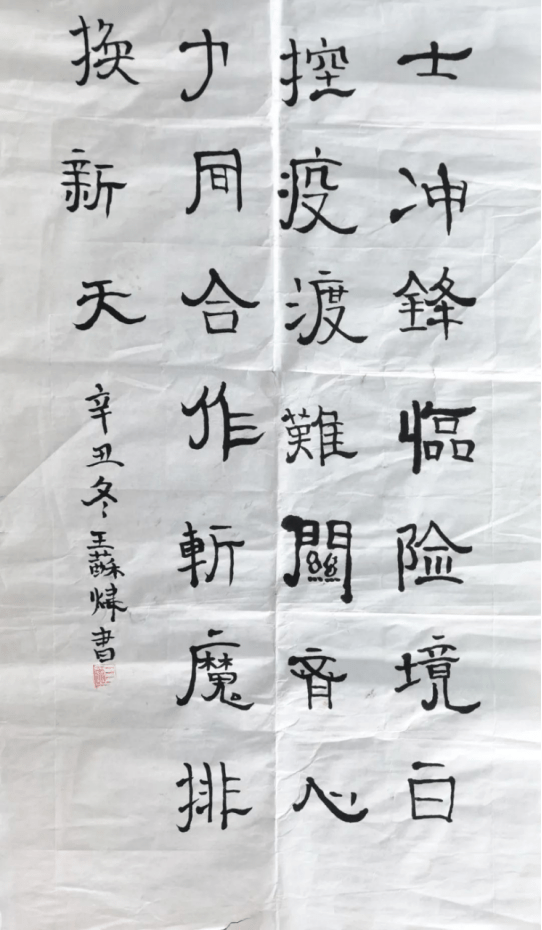 士冲鋒臨险境白
控疫渡難關齊心
力同合作斬魔排
換新天
辛丑冬王蘇煒書